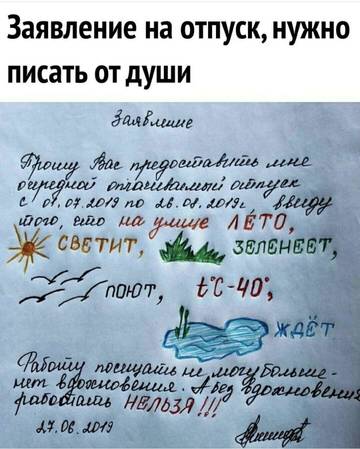 Заявление на отпуск, нужно
писать от души
Заявление
Прошу Вас предоставить мне
очередной оплачиваемый отпуск
с 01.07.2019 по 26.07.2019г. Ввиду
того, что на улице ЛЕТО,
СВЕТИТ, ЗЕЛЕНЕЕТ,
ПОЮТ, t°C-40°,
ЖДЁТ
Работу посещать не могу больше -
нет вдохновения. А без вдохновения
работать НЕЛЬЗЯ!!!
17.06.2019